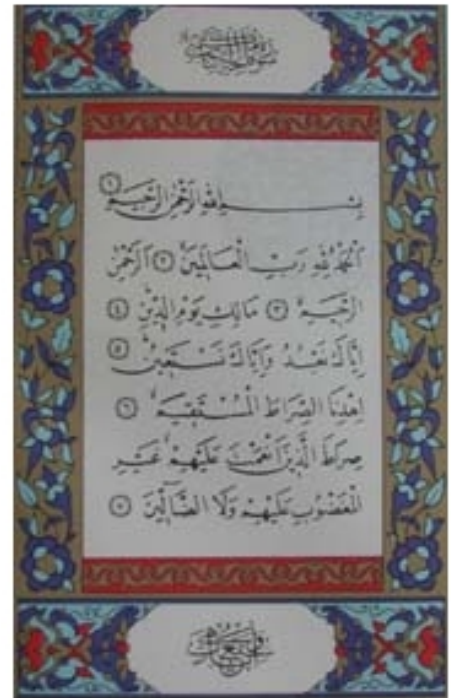 بِسْمِ اللهِ الرَّحْمٰنِ الرَّحِيمِ ١
اَلْحَمْدُ لِلّٰهِ رَبِّ الْعَالَمِينَ ٢ اَلرَّحْمٰنِ
الرَّحِيمِ ٣ مَالِكِ يَوْمِ الدِّينِ ٤
اِيَّاكَ نَعْبُدُ وَاِيَّاكَ نَسْتَعِينُ ٥
اِهْدِنَا الصِّرَاطَ الْمُسْتَقِيمَ ٦
صِرَاطَ الَّذِينَ اَنْعَمْتَ عَلَيْهِمْ غَيْرِ
الْمَغْضُوبِ عَلَيْهِمْ وَلَا الضَّالِّينَ ٧